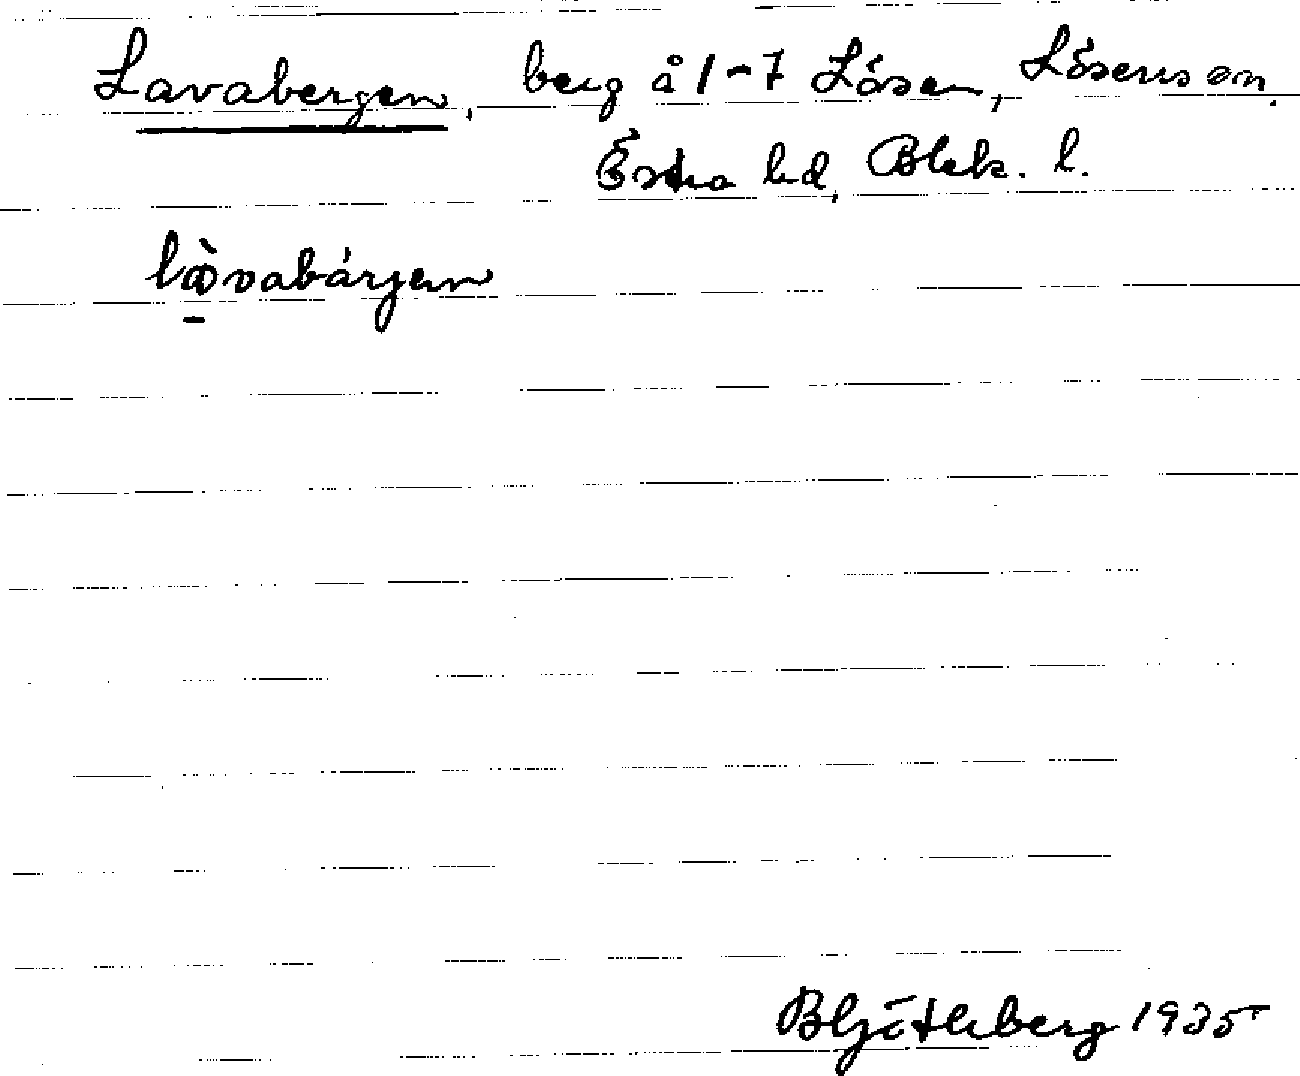 Lavabergen, berg å 1-7 Lösen, Lösens sn.
Östra hd, Blek. l.
lòvabárjen
BGötleberg 1935